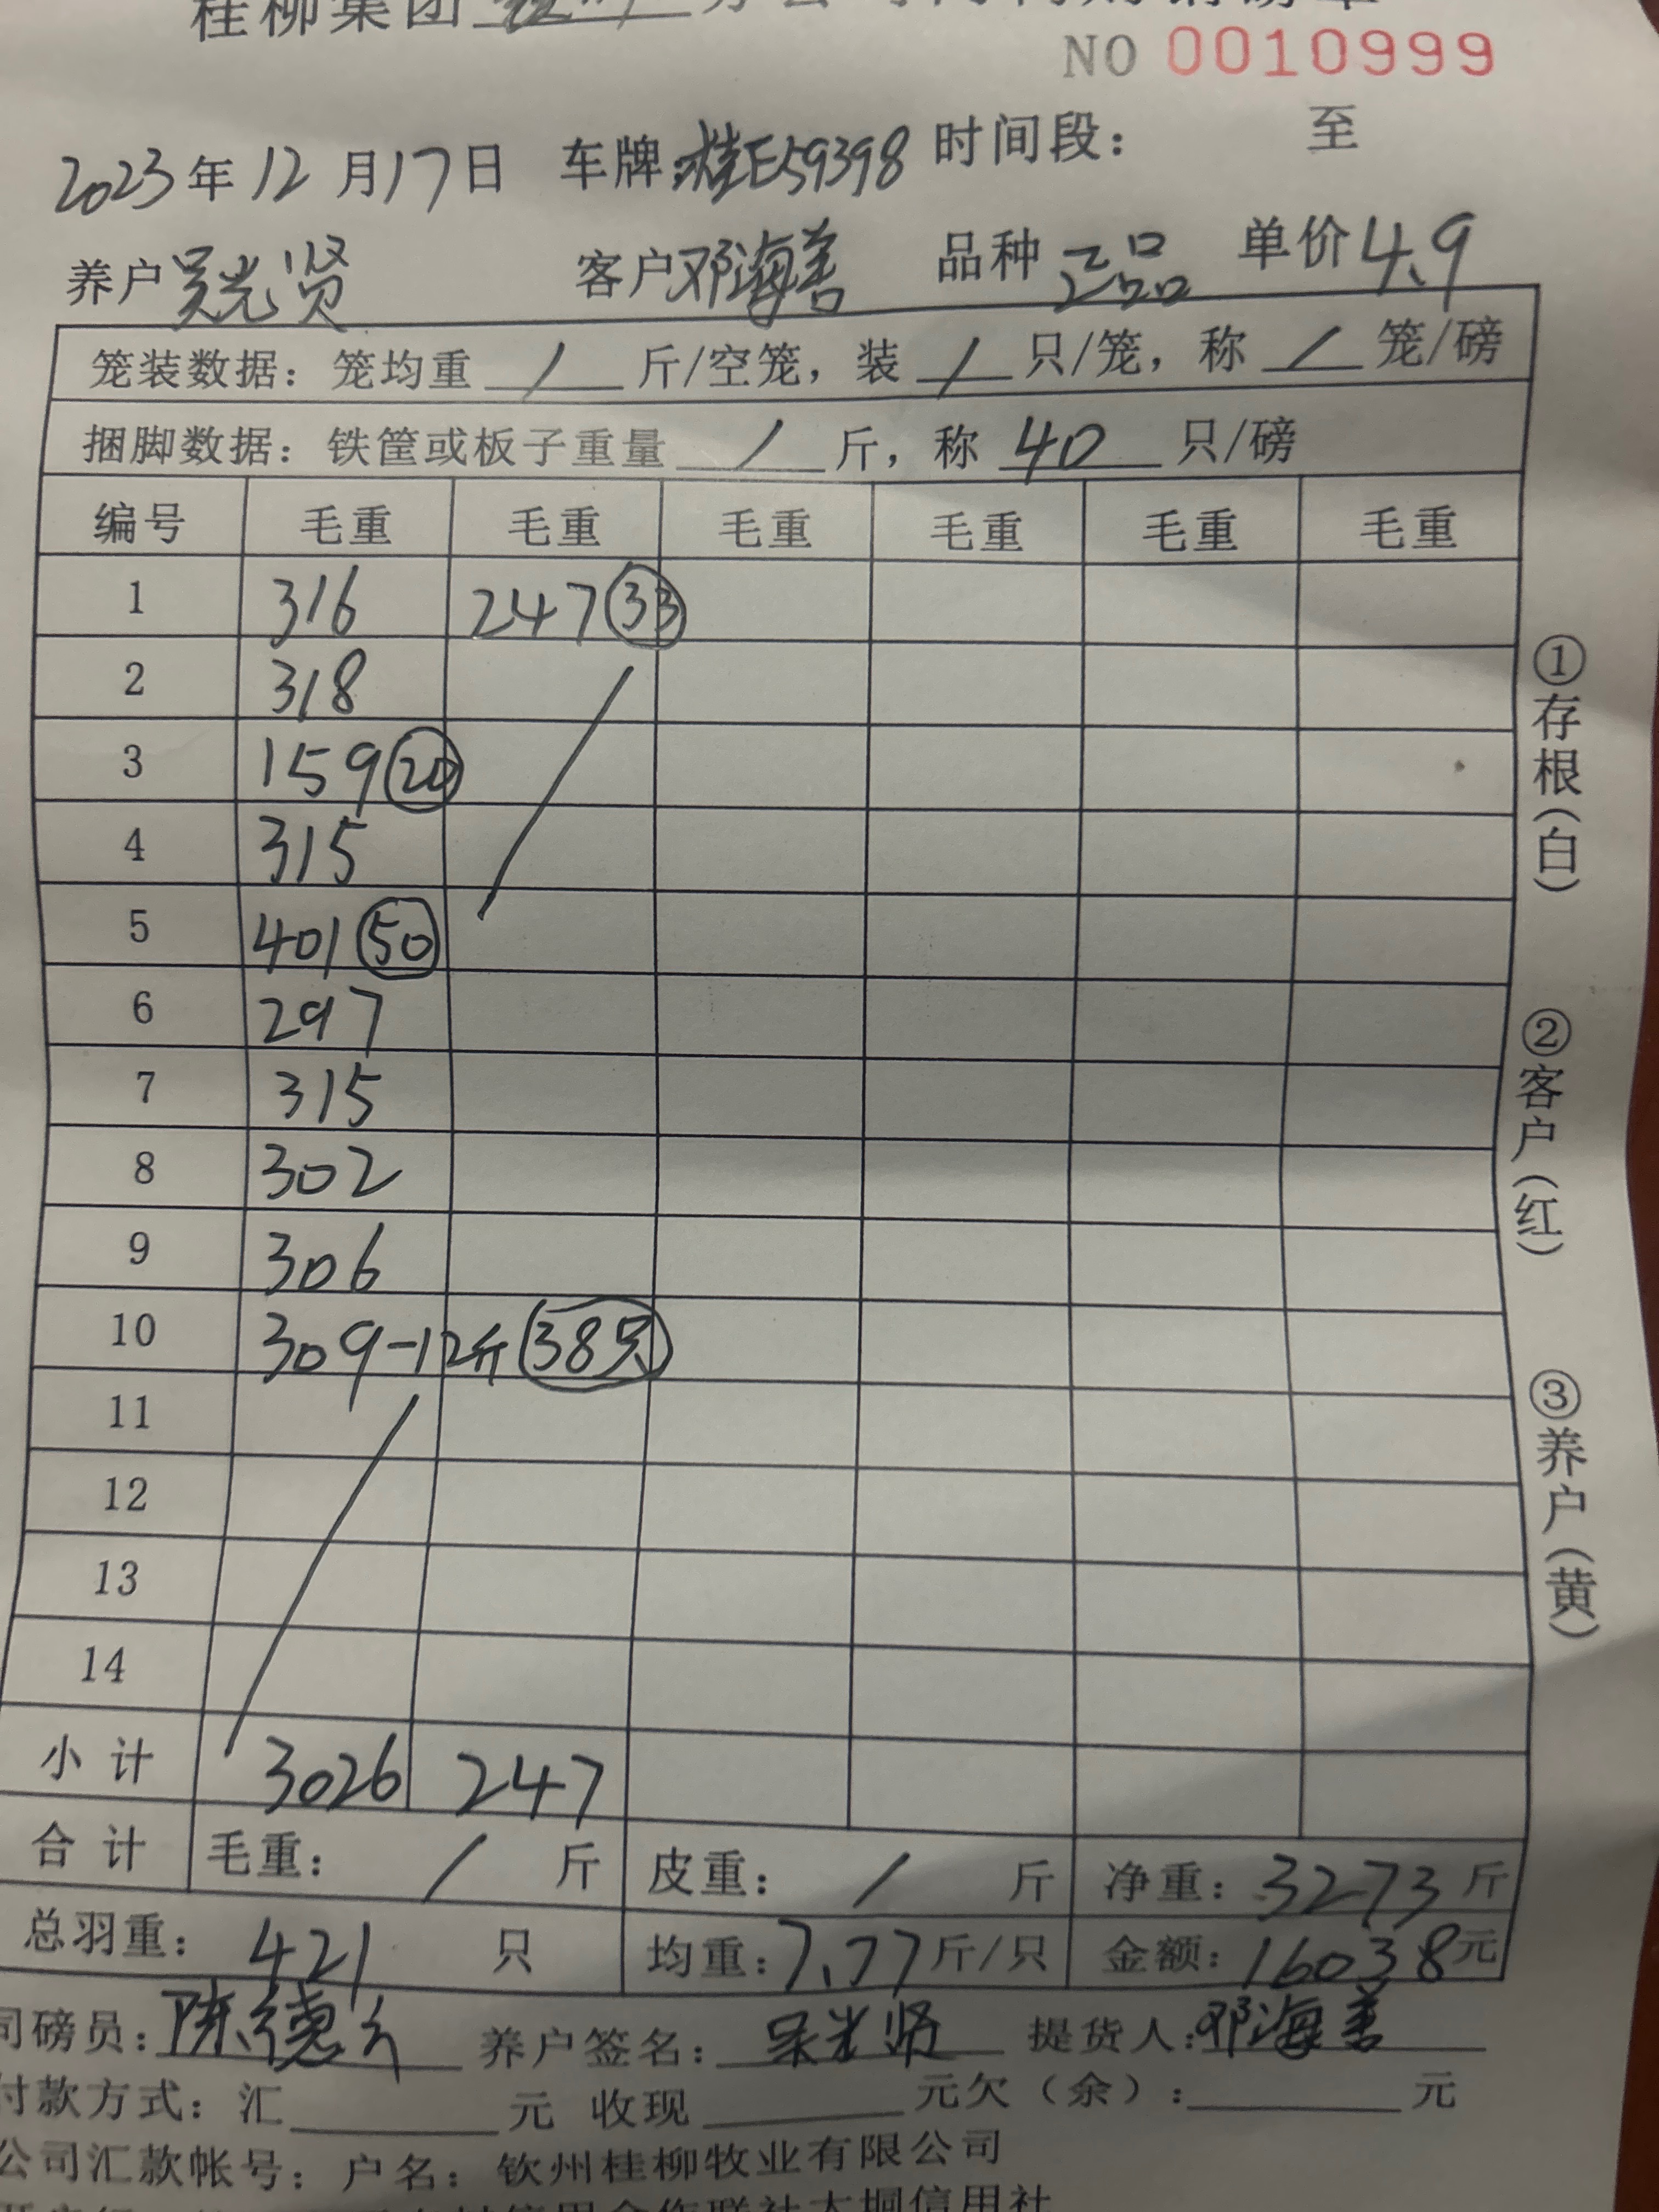 桂柳集团
NO 0010999
2023年12月17日 车牌:桂E59398 时间段: 至
养户 吴光贤 客户 邓海善 品种 正品 单价 4.9
笼装数据: 笼均重 / 斤/空笼, 装 / 只/笼, 称 / 笼/磅
捆脚数据: 铁筐或板子重量 / 斤, 称 40 只/磅
编号 毛重 毛重 毛重 毛重 毛重 毛重
1 316 247 33
2 318
3 159 20
4 315
5 401 50
6 297
7 315
8 302
9 306
10 309-12斤 38只
11
12
13
14
小计 3026 247
合计 毛重: / 斤 皮重: / 斤 净重: 3273 斤
总羽重: 421 只 均重: 7.77 斤/只 金额: 16038 元
司磅员: 陈德 养户签名: 吴光贤 提货人: 邓海善
付款方式: 汇 元 收现 元欠(余): 元
公司汇款帐号: 户名: 钦州桂柳牧业有限公司
①存根(白)
②客户(红)
③养户(黄)